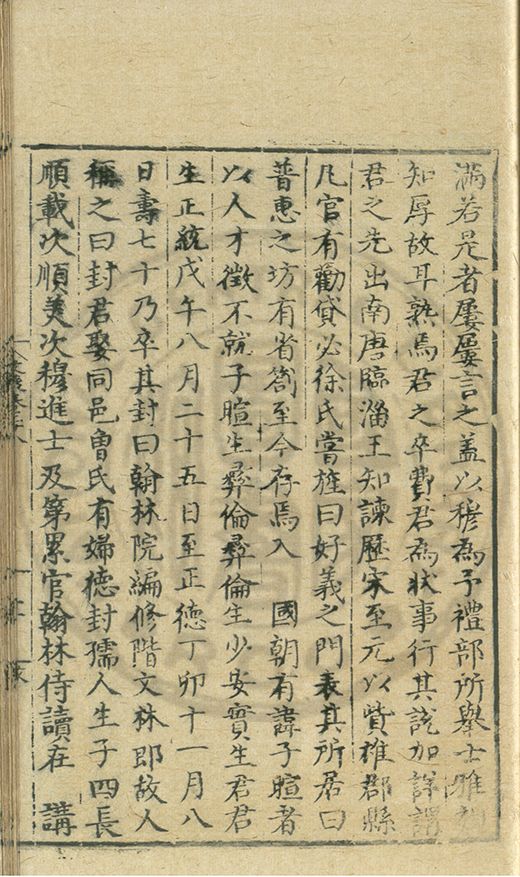 滿若是者屢屢言之盖以穆為予禮部所舉士雅相
知厚故耳熟焉君之卒費君為狀事行其說加詳謂
君之先出南唐臨淄王知諫歷宋至元以貲雄郡縣
凡官有勸貸必徐氏嘗旌曰好義之門表其所居曰
普惠之坊有省劄至今存焉入　國朝有諱子暄者
以人才徵不就子暄生彛倫彛倫生少安實生君君
生正統戊午八月二十五日至正德丁卯十一月八
日壽七十乃卒其封曰翰林院編修階文林郎故人
稱之曰封君娶同邑魯氏有婦德封孺人生子四長
順載次順美次穆進士及第累官翰林侍讀在　講